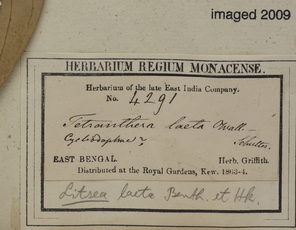 imaged 2009
HERBARIUM REGIUM MONACENSE.
Herbarium of the late East India Company.
No. 4291
Tetranthera laeta Wall.
Cyclodaphne
EAST BENGAL. Herb. Griffith.
Distributed at the Royal Gardens, Kew. 1863-4.
Litsea laeta Benth. et Hk.